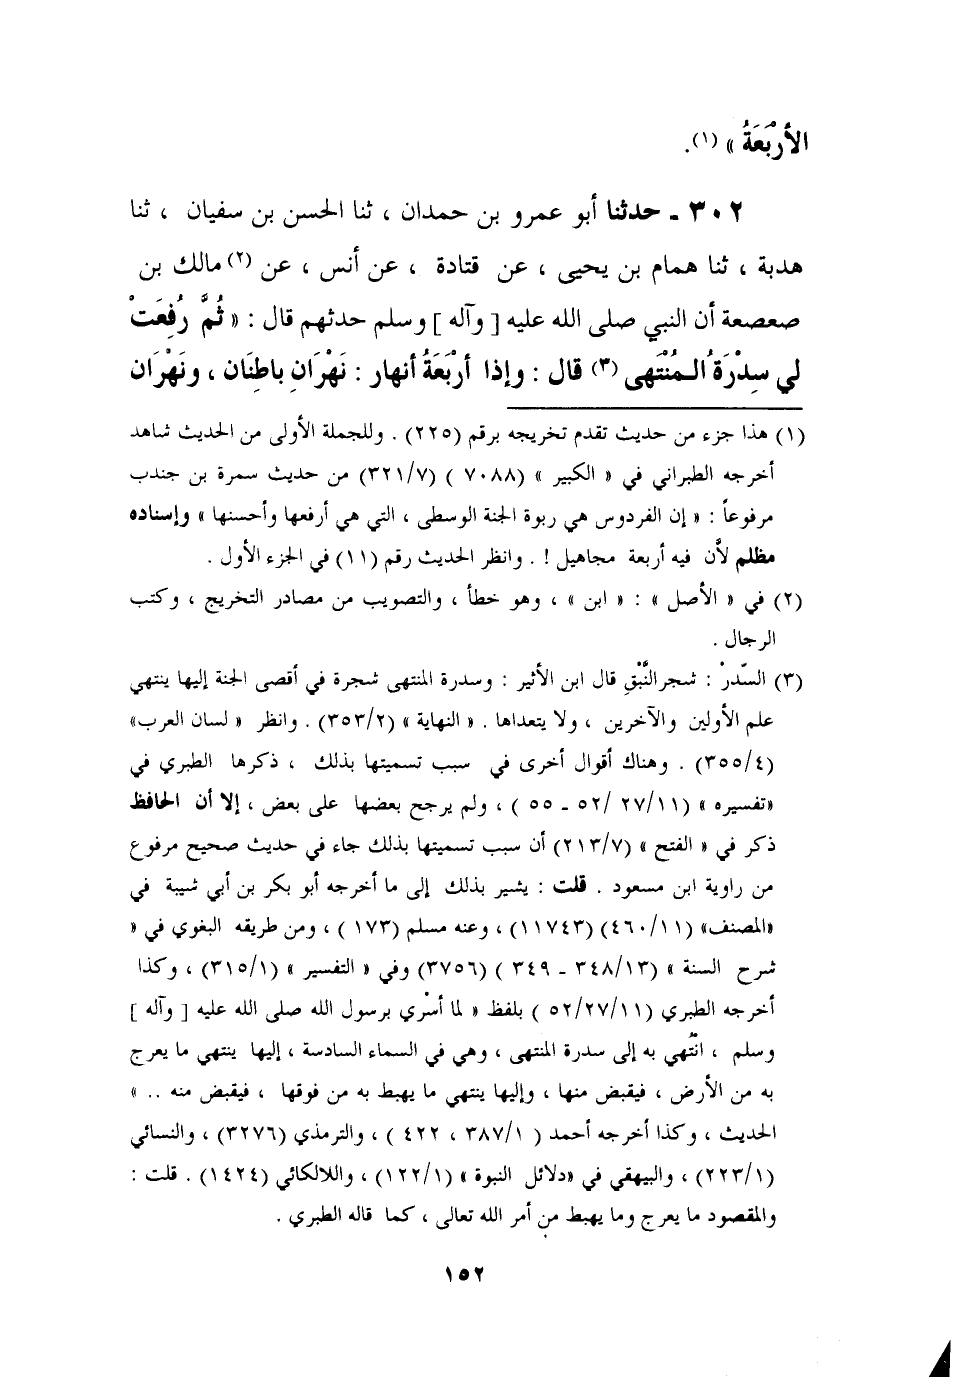 الأَرْبَعَةُ » (١).
٣٠٢ - حدثنا أبو عمرو بن حمدان ، ثنا الحسن بن سفيان ، ثنا
هدبة ، ثنا همام بن يحيى ، عن قتادة ، عن أنس ، عن (٢) مالك بن
صعصعة أن النبي صلى الله عليه [ وآله ] وسلم حدثهم قال : « ثُمَّ رُفِعَتْ
لي سِدْرَةُ الـمُنْتَهى (٣) قال : وإذا أَرْبَعَةُ أنهار : نَهْرَانِ باطِنَان ، ونَهْرَان
(١) هذا جزء من حديث تقدم تخريجه برقم (٢٢٥) . وللجملة الأولى من الحديث شاهد
أخرجه الطبراني في « الكبير » (٧٠٨٨ ) (٣٢١/٧) من حديث سمرة بن جندب
مرفوعاً : « إن الفردوس هي ربوة الجنة الوسطى ، التي هي أرفعها وأحسنها » وإسناده
مظلم لأَن فيه أربعة مجاهيل ! . وانظر الحديث رقم (١١) في الجزء الأول .
(٢) في « الأصل » : « ابن » ، وهو خطأ ، والتصويب من مصادر التخريج ، وكتب
الرجال .
(٣) السِّدرْ : شجرالنَّبْقِ قال ابن الأثير : وسدرة المنتهى شجرة في أقصى الجنة إليها ينتهي
علم الأولين والآخرين ، ولا يتعداها . « النهاية » (٣٥٣/٢) . وانظر « لسان العرب»
(٣٥٥/٤) . وهناك أقوال أخرى في سبب تسميتها بذلك ، ذكرها الطبري في
«تفسيره » (٢٧/١١ /٥٢ - ٥٥ ) ، ولم يرجح بعضها على بعض ، إلا أن الحافظ
ذكر في « الفتح » (٢١٣/٧) أن سبب تسميتها بذلك جاء في حديث صحيح مرفوع
من راوية ابن مسعود . قلت : يشير بذلك إلى ما أخرجه أبو بكر بن أبي شيبة في
«المصنف» (٤٦٠/١١) (١١٧٤٣) ، وعنه مسلم (١٧٣ ) ، ومن طريقه البغوي في «
شرح السنة » (٣٤٨/١٣ - ٣٤٩ ) (٣٧٥٦) وفي « التفسير » (٣١٥/١) ، وكذا
أخرجه الطبري (٥٢/٢٧/١١ ) بلفظ « لما أسْري برسول الله صلى الله عليه [ وآله ]
وسلم ، انْتُهي به إلى سدرة المنتهى ، وهي في السماء السادسة ، إليها ينتهي ما يعرج
به من الأرض ، فيقبض منها ، وإليها ينتهي ما يهبط به من فوقها ، فيقبض منه .. »
الحديث ، وكذا أخرجه أحمد ( ٣٨٧/١ ، ٤٢٢ ) ، والترمذي (٣٢٧٦) ، والنسائي
(٢٢٣/١) ، والبيهقي في «دلائل النبوة » (١٢٢/١) ، واللالكائي (١٤٢٤) . قلت :
والمقصود ما يعرج وما يهبط من أمر الله تعالى ، كما قاله الطبري .
١٥٢